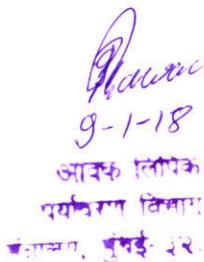 9-1-18
आवक लिपिक
पर्यावरण विभाग
मंत्रालय, मुंबई-३२.